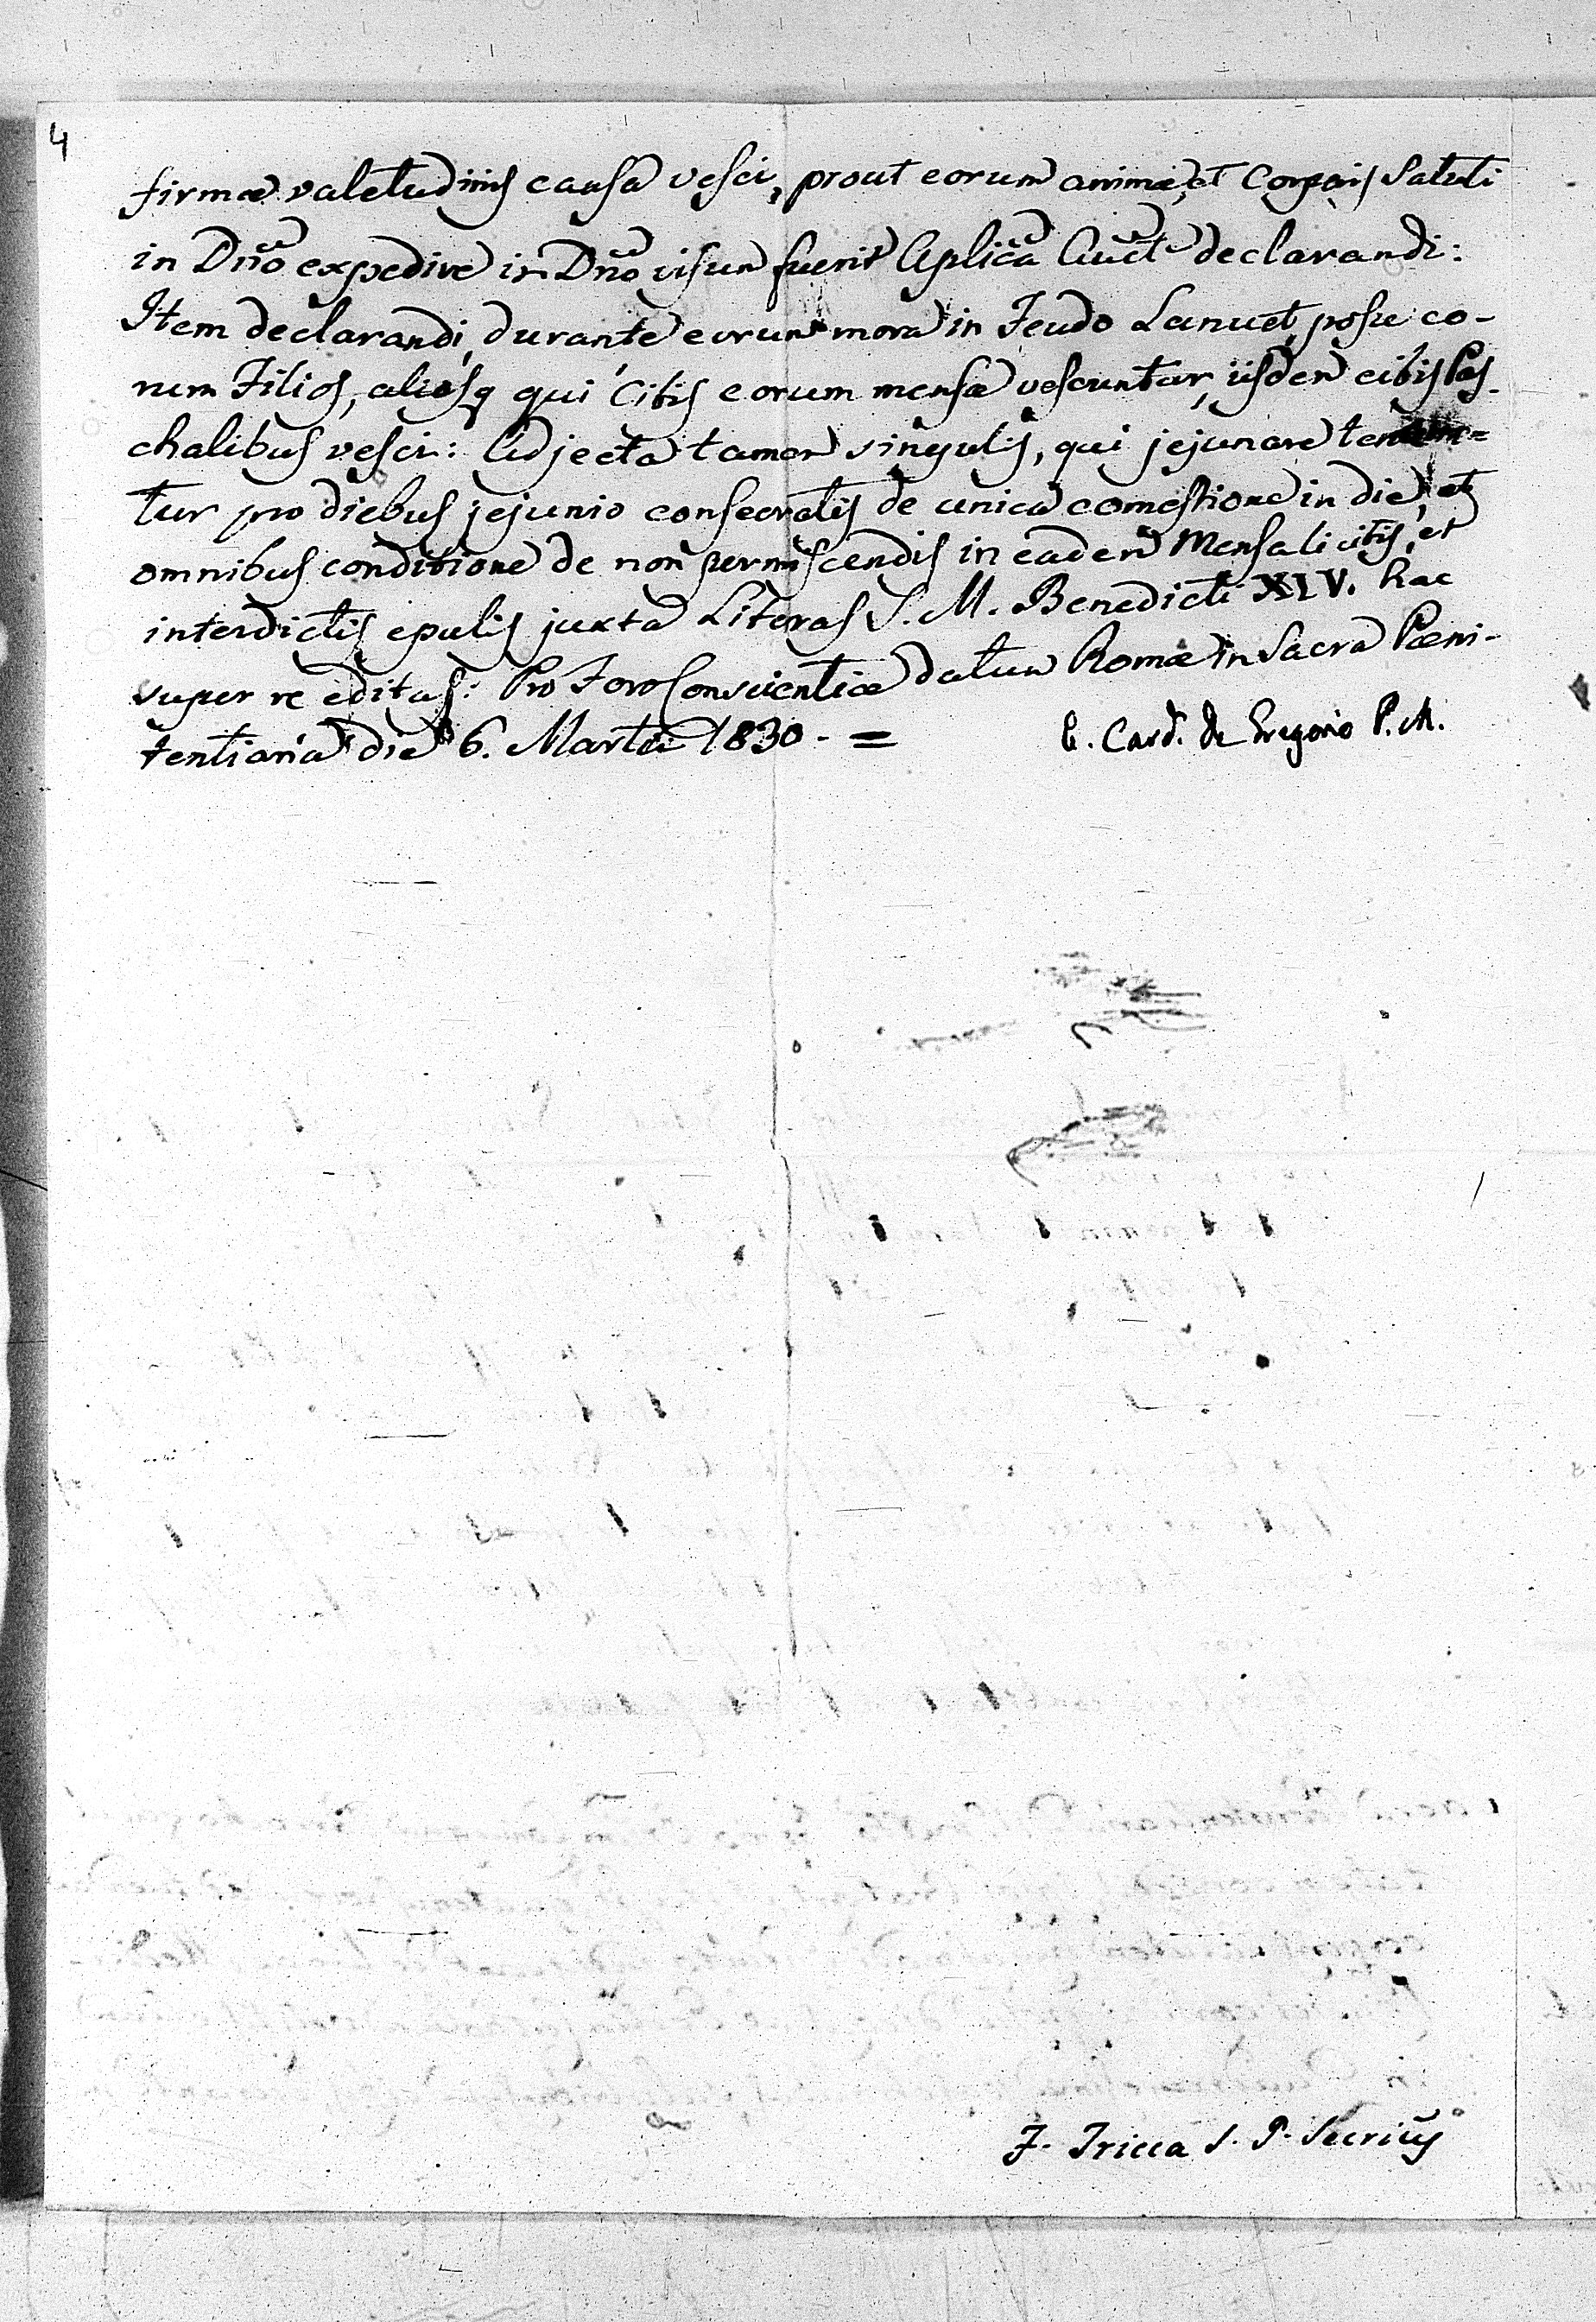 4
firmæ valetudinis causa vesci, prout eorum animæ, et Corporis Saluti
in Dño expedire in Dño visum fuerit Aplica Auct declarandi:
Item declarandi, durante eorum mora in Feudo Lanuet, posse eo-
rum Filios, aliosq qui Cibis eorum mensæ vescuntur, iisdem cibis Pas-
chalibus vesci: Adjecta tamen singulis, qui jejunare tenen=
tur pro diebus jejunio consecratis de unica comestione in die, et
omnibus conditione de non permiscendis in eadem Mensa licitis, et
interdictis epulis juxta Literas S. M. Benedicti XIV. hac
super re editas: Pro Foro Conscientiæ datum Romæ in Sacra Pœni-
tentiaria die 6. Martii 1830. =
E. Card. de Gregorio P. M.
F. Tricca S. P. Secrius